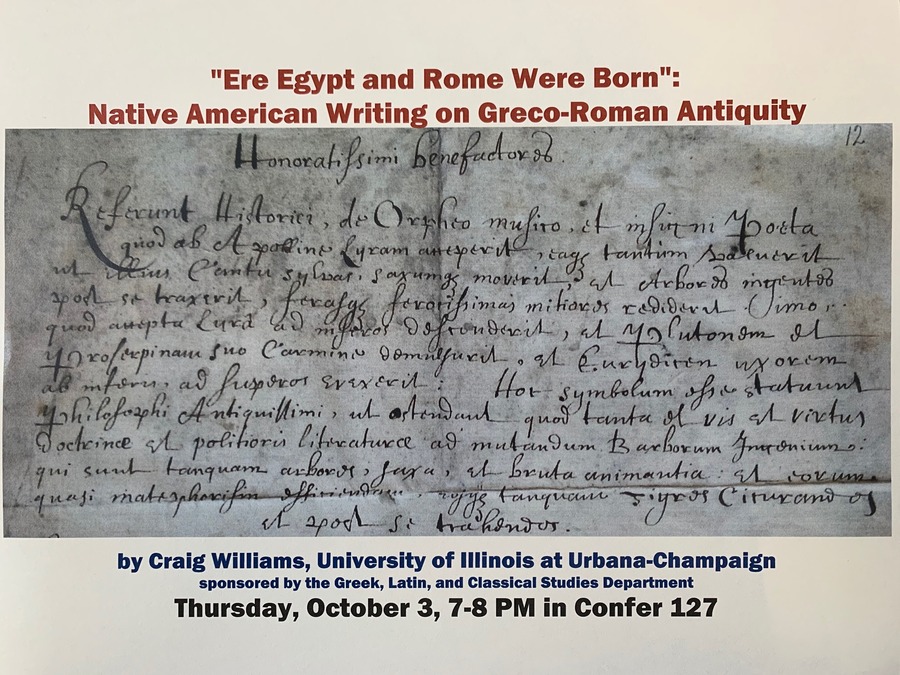 "Ere Egypt and Rome Were Born":
Native American Writing on Greco-Roman Antiquity
12
Honoratissimi benefactores.
Referunt Historici, de Orpheo musico, et insigni Poeta
quod ab Apolline Lyram acceperit, eaq tantum valuerit
ut illius Cantu sylvas, saxumq moverit, et Arbores ingentes
post se traxerit, ferasq ferocissimas mitiores rediderit
quod accepta Lyra ad inferos descenderit, et Plutonem et
Proserpinam suo Carmine demulsurit, et Eurydicen uxorem
ab inferis ad superos evexerit: Hoc symbolum esse statuunt
Philosophi Antiquissimi, ut ostendant quod tanta et vis et virtus
doctrinae et politioris literaturae ad mutandum Barborum Ingenium:
qui sunt tanquam arbores, saxa, et bruta animantia: et eorum
quasi matephorisin efficiendam, tanquam Tigres Cicurandos
et post se trahendos.
by Craig Williams, University of Illinois at Urbana-Champaign
sponsored by the Greek, Latin, and Classical Studies Department
Thursday, October 3, 7-8 PM in Confer 127